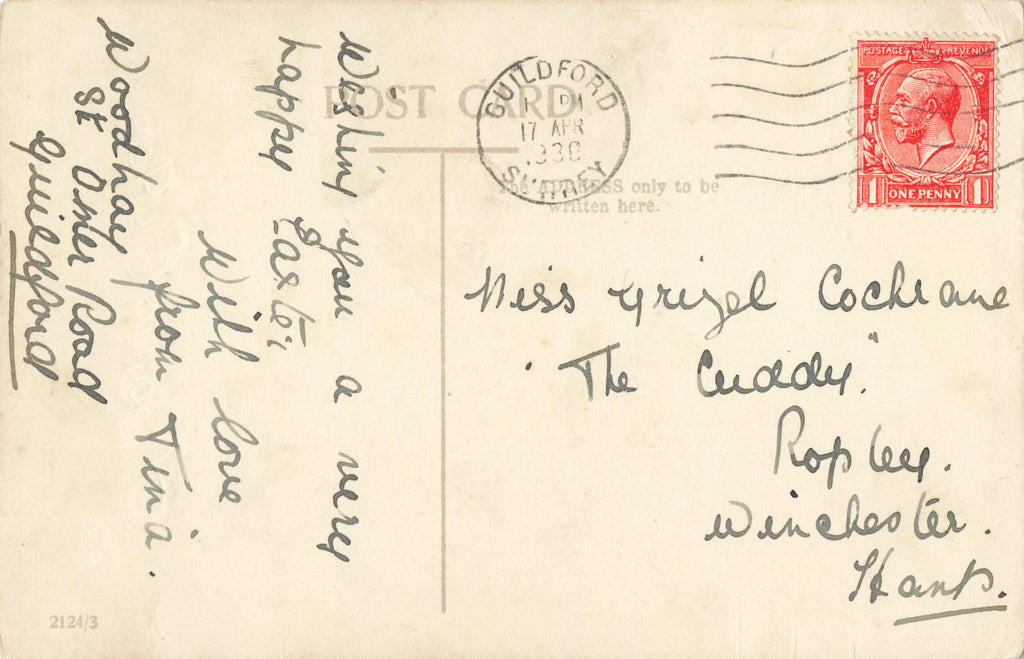 POST CARD
GUILDFORD
PM
17 APR
1930
SURREY
POSTAGE REVENUE
1 ONE PENNY 1
The ADDRESS only to be
written here.
Wishing you a very
happy Easter
With love
from Tina.
Woodhay
St Omer Road
Guildford
Miss Grizel Cochrane
"The Cuddy"
Ropley.
Winchester.
Hants.
2124/3